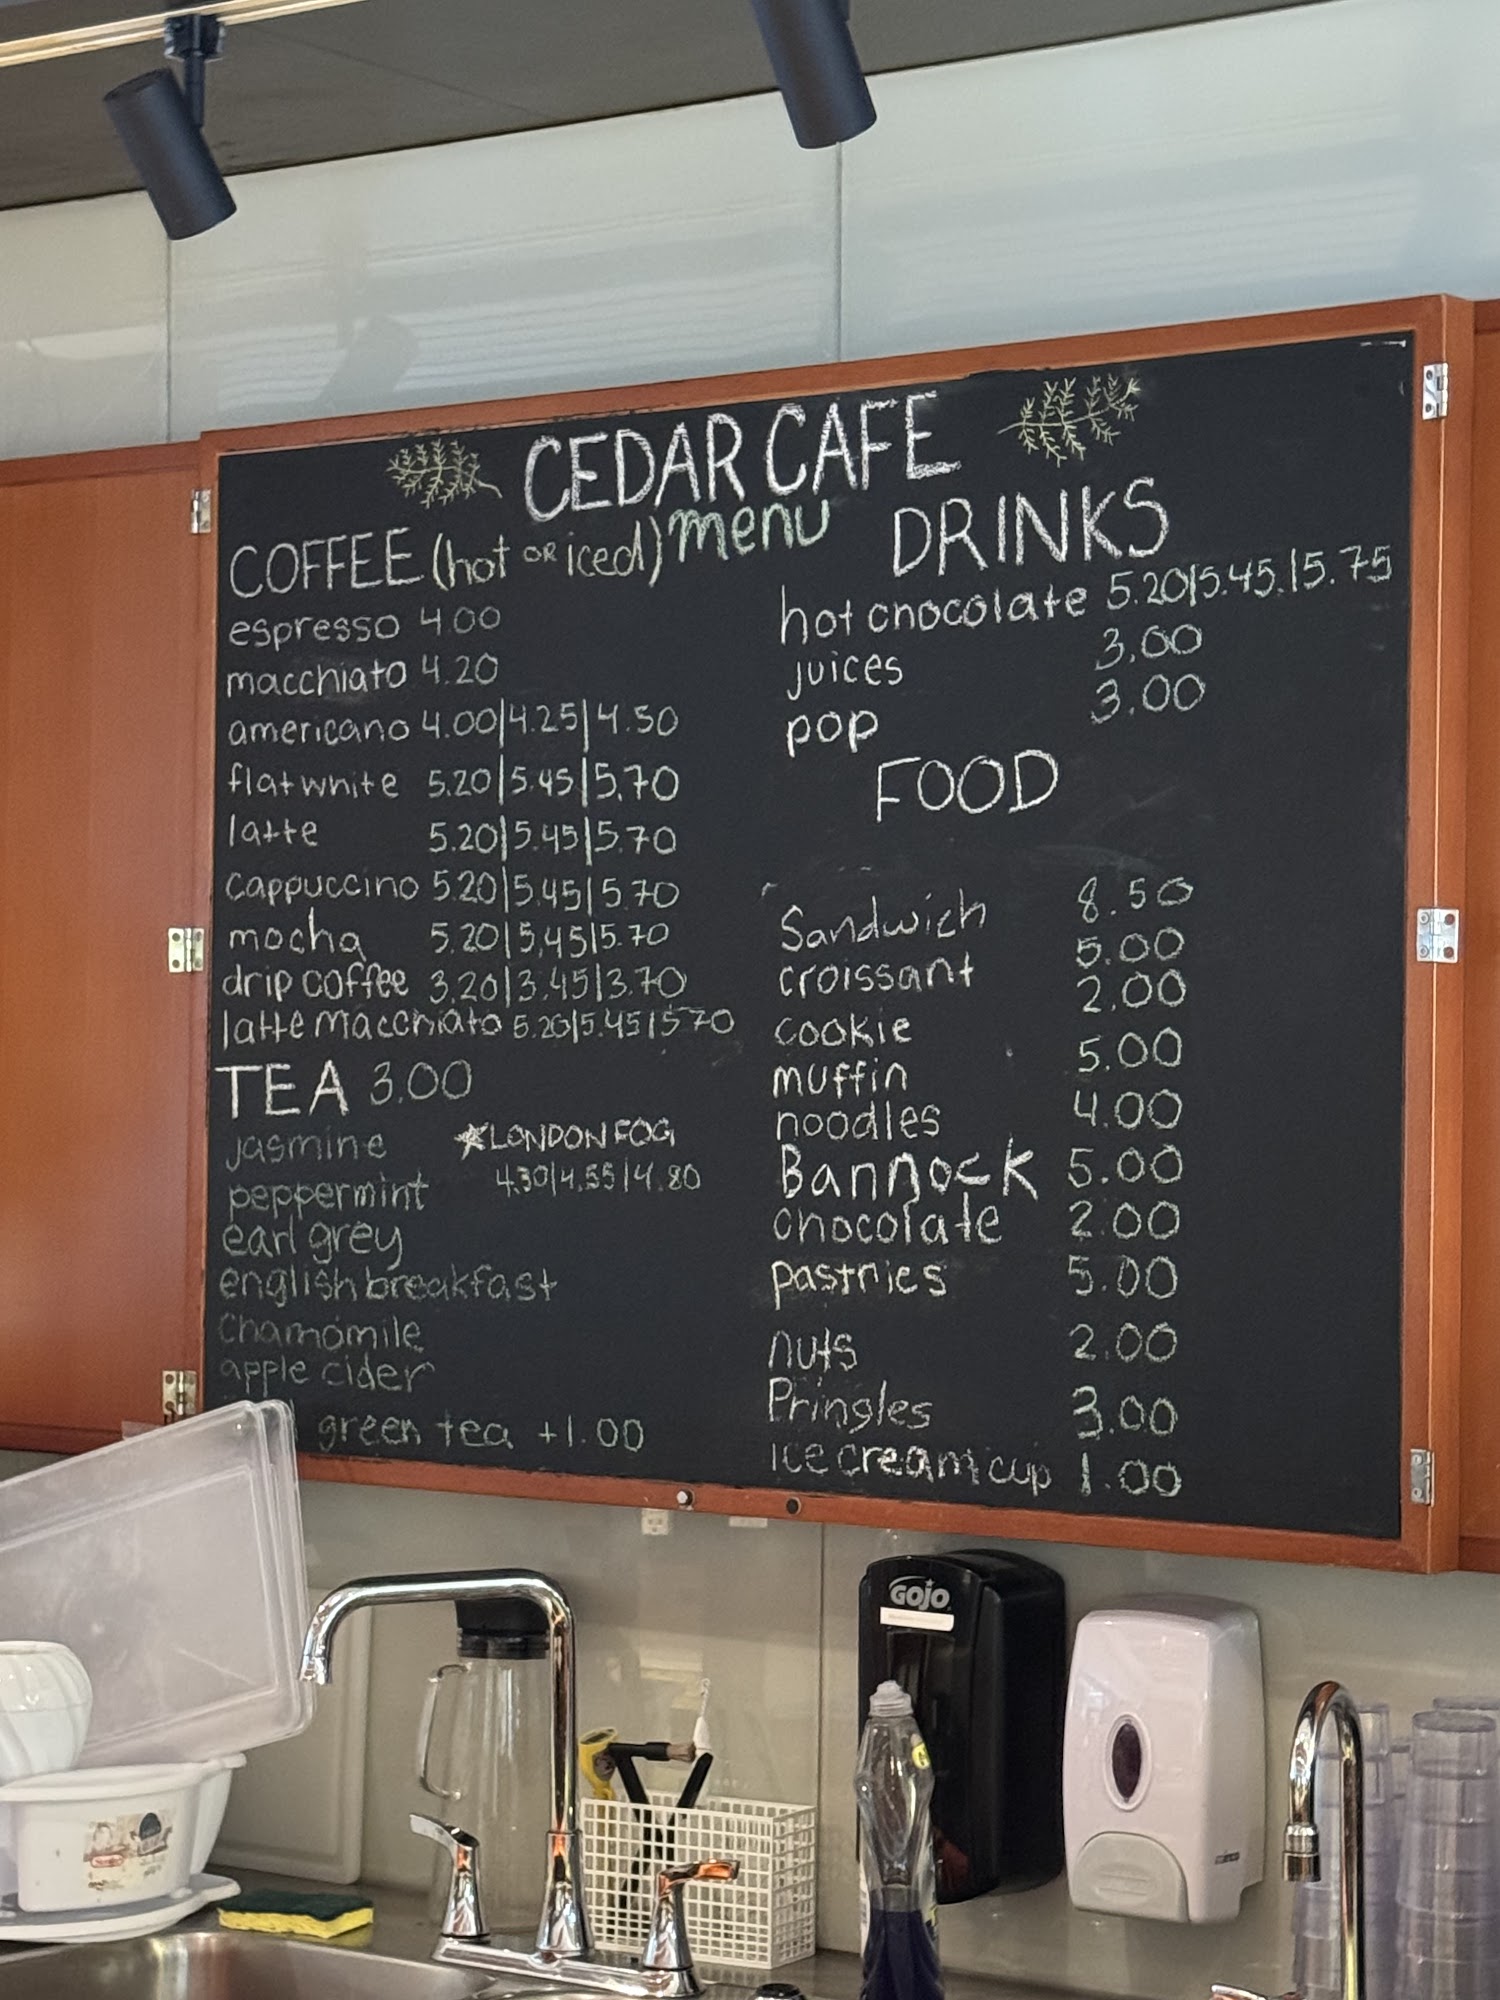 CEDAR CAFE
menu
COFFEE (hot OR iced)
espresso 4.00
macchiato 4.20
americano 4.00|4.25|4.50
flat white 5.20|5.45|5.70
latte 5.20|5.45|5.70
cappuccino 5.20|5.45|5.70
mocha 5.20|5.45|5.70
drip coffee 3.20|3.45|3.70
latte macchiato 5.20|5.45|5.70
TEA 3.00
jasmine
peppermint
earl grey
english breakfast
chamomile
apple cider
green tea +1.00
★LONDON FOG
4.30|4.55|4.80
DRINKS
hot chocolate 5.20|5.45.|5.75
juices 3.00
pop 3.00
FOOD
Sandwich 8.50
croissant 5.00
cookie 2.00
muffin 5.00
noodles 4.00
Bannock 5.00
chocolate 2.00
pastries 5.00
nuts 2.00
Pringles 3.00
ice cream cup 1.00
GOJO